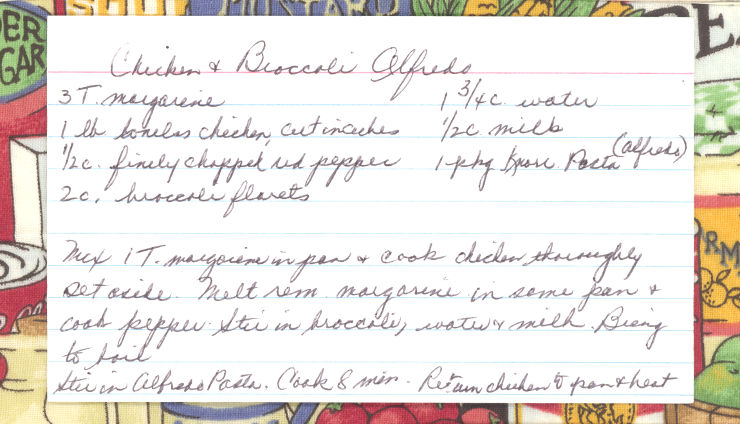 Chicken & Broccoli Alfredo
3 T. margarine
1 lb boneless chicken, cut in cubes
1/2 c. finely chopped red pepper
2 c. broccoli florets
1 3/4 c. water
1/2 c. milk
1-pkg Knorr Pasta (alfredo)
Mix 1 T. margarine in pan & cook chicken thoroughly
set aside. Melt rem. margarine in same pan &
cook pepper. Stir in broccoli, water & milk. Bring
to boil
Stir in Alfredo Pasta. Cook 8 min. Return chicken to pan & heat
ER
GAR
E
RM